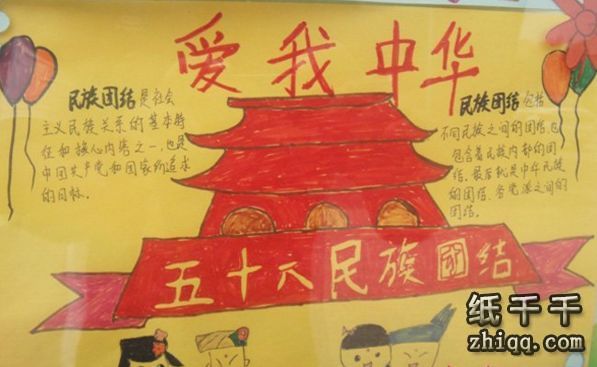 爱我中华
民族团结是社会
主义民族关系的基本特
征和核心内容之一,也是
中国共产党和国家所追求
的目标。
民族团结包括
不同民族之间的团结,也
包含着民族内部的团
结。最后就是中华民族
的团结、各党派之间的
团结。
五十六民族团结
纸千千
zhiqq.com